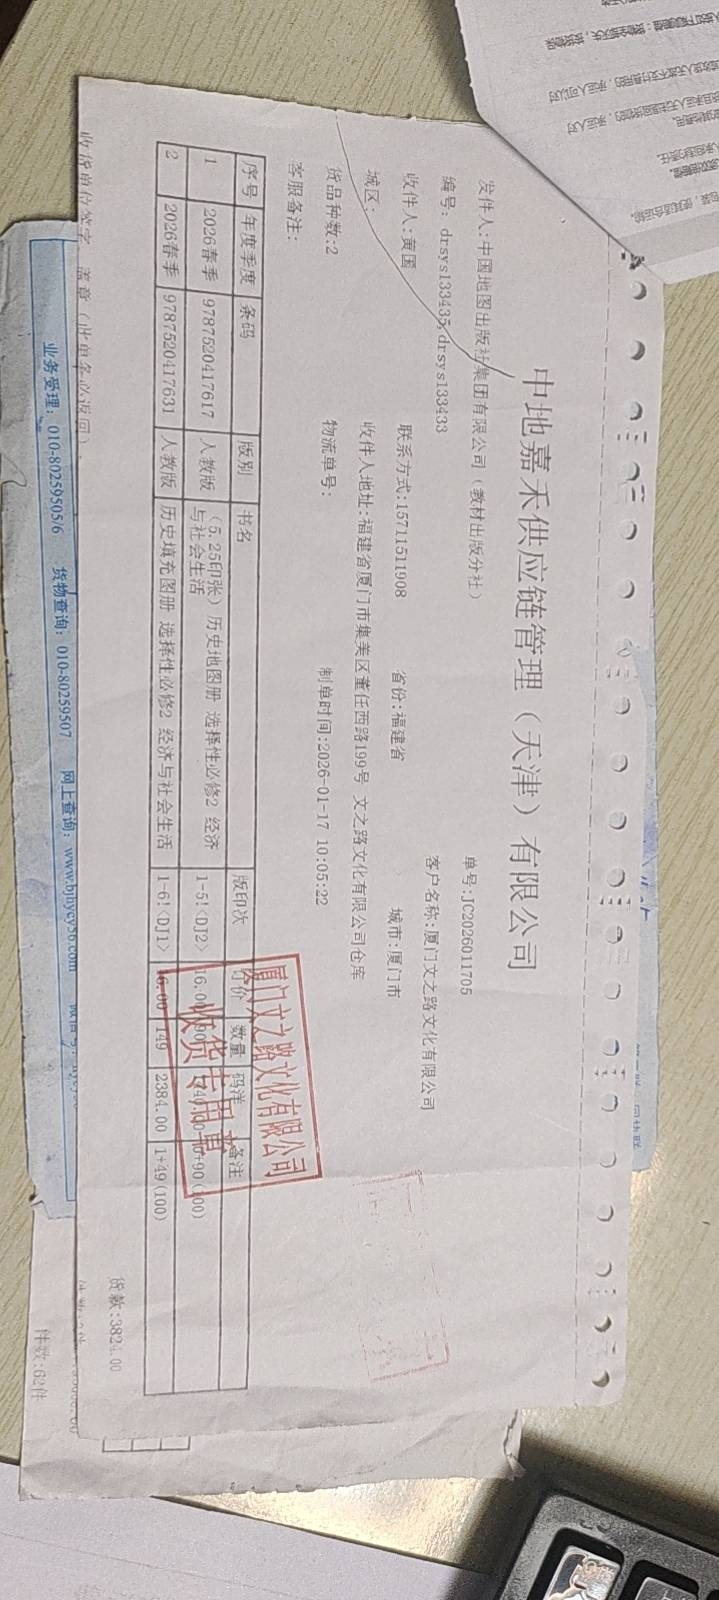 中地嘉禾供应链管理（天津）有限公司
发件人:中国地图出版社集团有限公司（教材出版分社） 单号:JC2026011705
编号: drsys133435,drsys133433 客户名称:厦门文之路文化有限公司
收件人:黄国 联系方式:15711511908 省份:福建省 城市:厦门市
城区: 收件人地址:福建省厦门市集美区董任西路199号 文之路文化有限公司仓库
货品种数:2 物流单号: 制单时间:2026-01-17 10:05:22
客服备注:
序号 年度季度 条码 版别 书名 版印次 价 数量 码洋 备注
1 2026春季 9787520417617 人教版 （5.25印张）历史地图册 选择性必修2 经济与社会生活 1-5!<DJ2> 16.00 90 0+90(100)
2 2026春季 9787520417631 人教版 历史填充图册 选择性必修2 经济与社会生活 1-6!<DJ1> 16.00 149 2384.00 1+49(100)
货款:3824.00
厦门文之路文化有限公司
收货专用章
收货单位签字、盖章（此单务必返回）
件数:62件
业务受理: 010-80259505/6 货物查询: 010-80259507 网上查询: www.bjhycy56.com